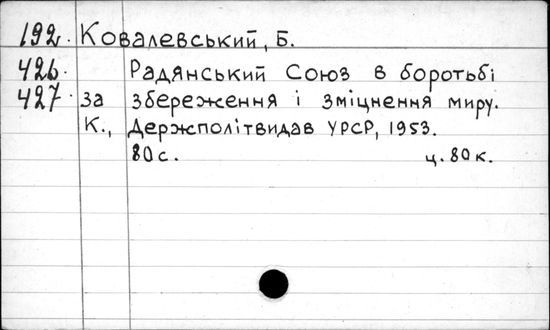 192. Ковалевський, Б.
426. Радянський Союз в боротьбі
427. за збереження і зміцнення миру.
К., Держполітвидав УРСР, 1953.
80с. ц. 80к.